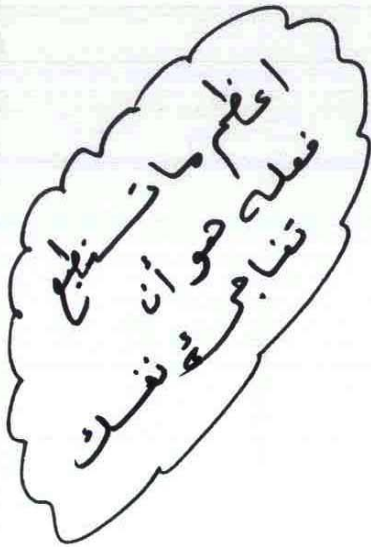 اعظم ما تستطيع
فعله هو أن
تفاجئ نفسك